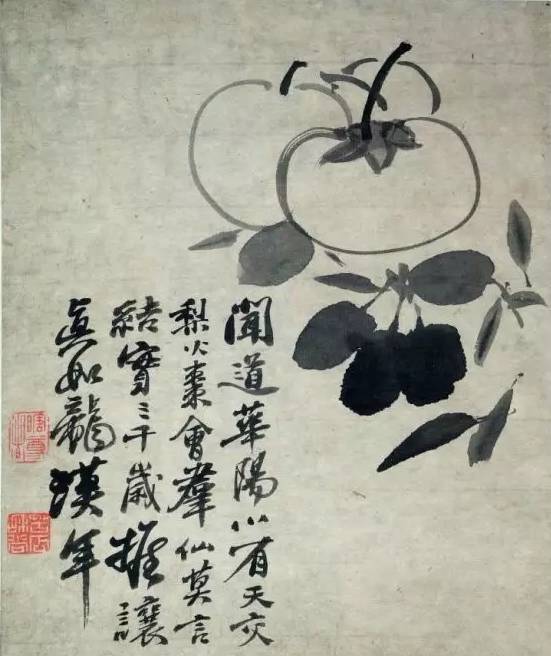 聞道華陽小有天交
梨火棗會羣仙莫言
結實三千歲推讓
眞如龍漢年